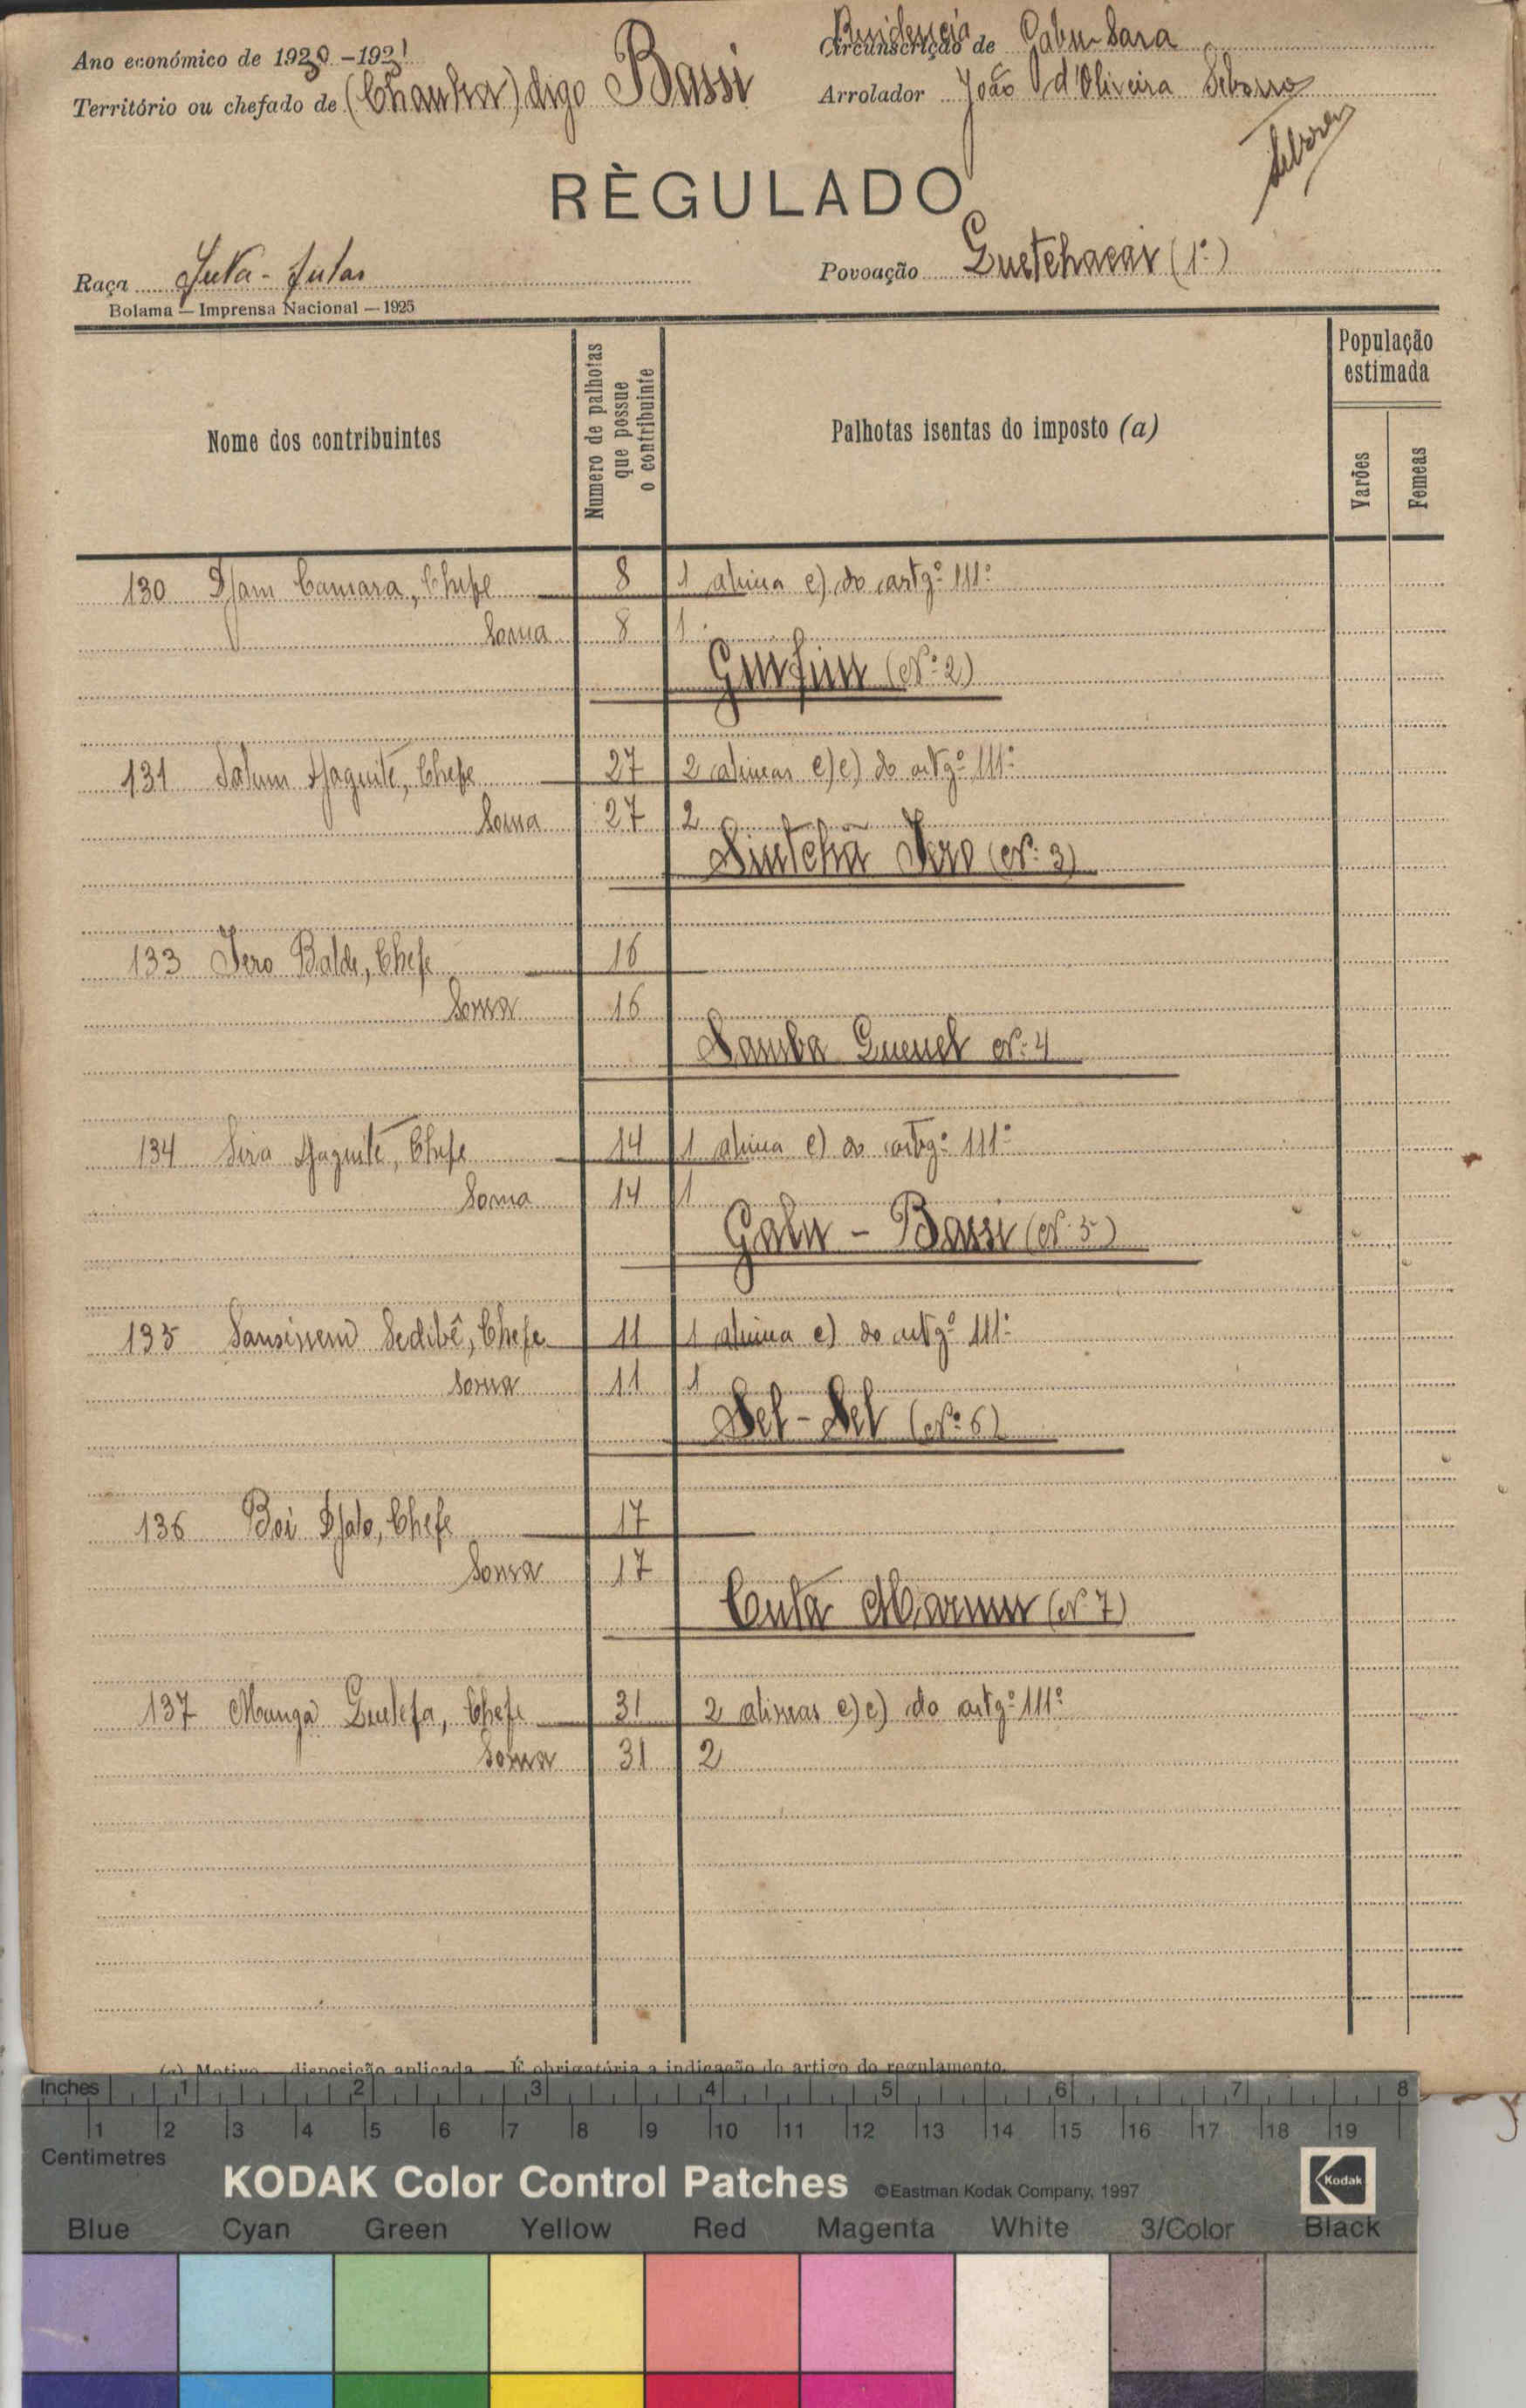 Ano económico de 1930 - 1931
Residencia
Circunscrição de Gabu-Sara
Território ou chefado de (Chanha) digo Bassi
Arrolador João d'Oliveira
RÈGULADO
Raça Futa-fulas
Povoação (1º)
Bolama — Imprensa Nacional — 1925
Nome dos contribuintes
Numero de palhotas que possue o contribuinte
Palhotas isentas do imposto (a)
População estimada
Varões
Femeas
130 Djam Camara, Chefe 8 1 alinea e) do artgº 111º
Soma 8 1
(Nº 2)
131 Salum Djaguité, Chefe 27 2 alineas e) e) do artgº 111º
Soma 27 2
Sintchã Iero (Nº 3)
133 Iero Balde, Chefe 16
Soma 16
Samba Guenel Nº 4
134 Sira Djaguité, Chefe 14 1 alinea e) do artgº 111º
Soma 14 1
Gabu - Bassi (Nº 5)
135 Sedibê, Chefe 11 1 alinea e) do artgº 111º
Soma 11 1
Sel-Sel (Nº 6)
136 Boi Djalo, Chefe 17
Soma 17
Cuta Mamur (Nº 7)
137 Manga Chefe 31 2 alineas e) e) do artgº 111º
Soma 31 2
(a) Motivo — disposição aplicada — É obrigatória a indicação do artigo do regulamento.
Inches 1 2 3 4 5 6 7 8
1 2 3 4 5 6 7 8 9 10 11 12 13 14 15 16 17 18 19
Centimetres
KODAK Color Control Patches ©Eastman Kodak Company, 1997 Kodak
Blue Cyan Green Yellow Red Magenta White 3/Color Black